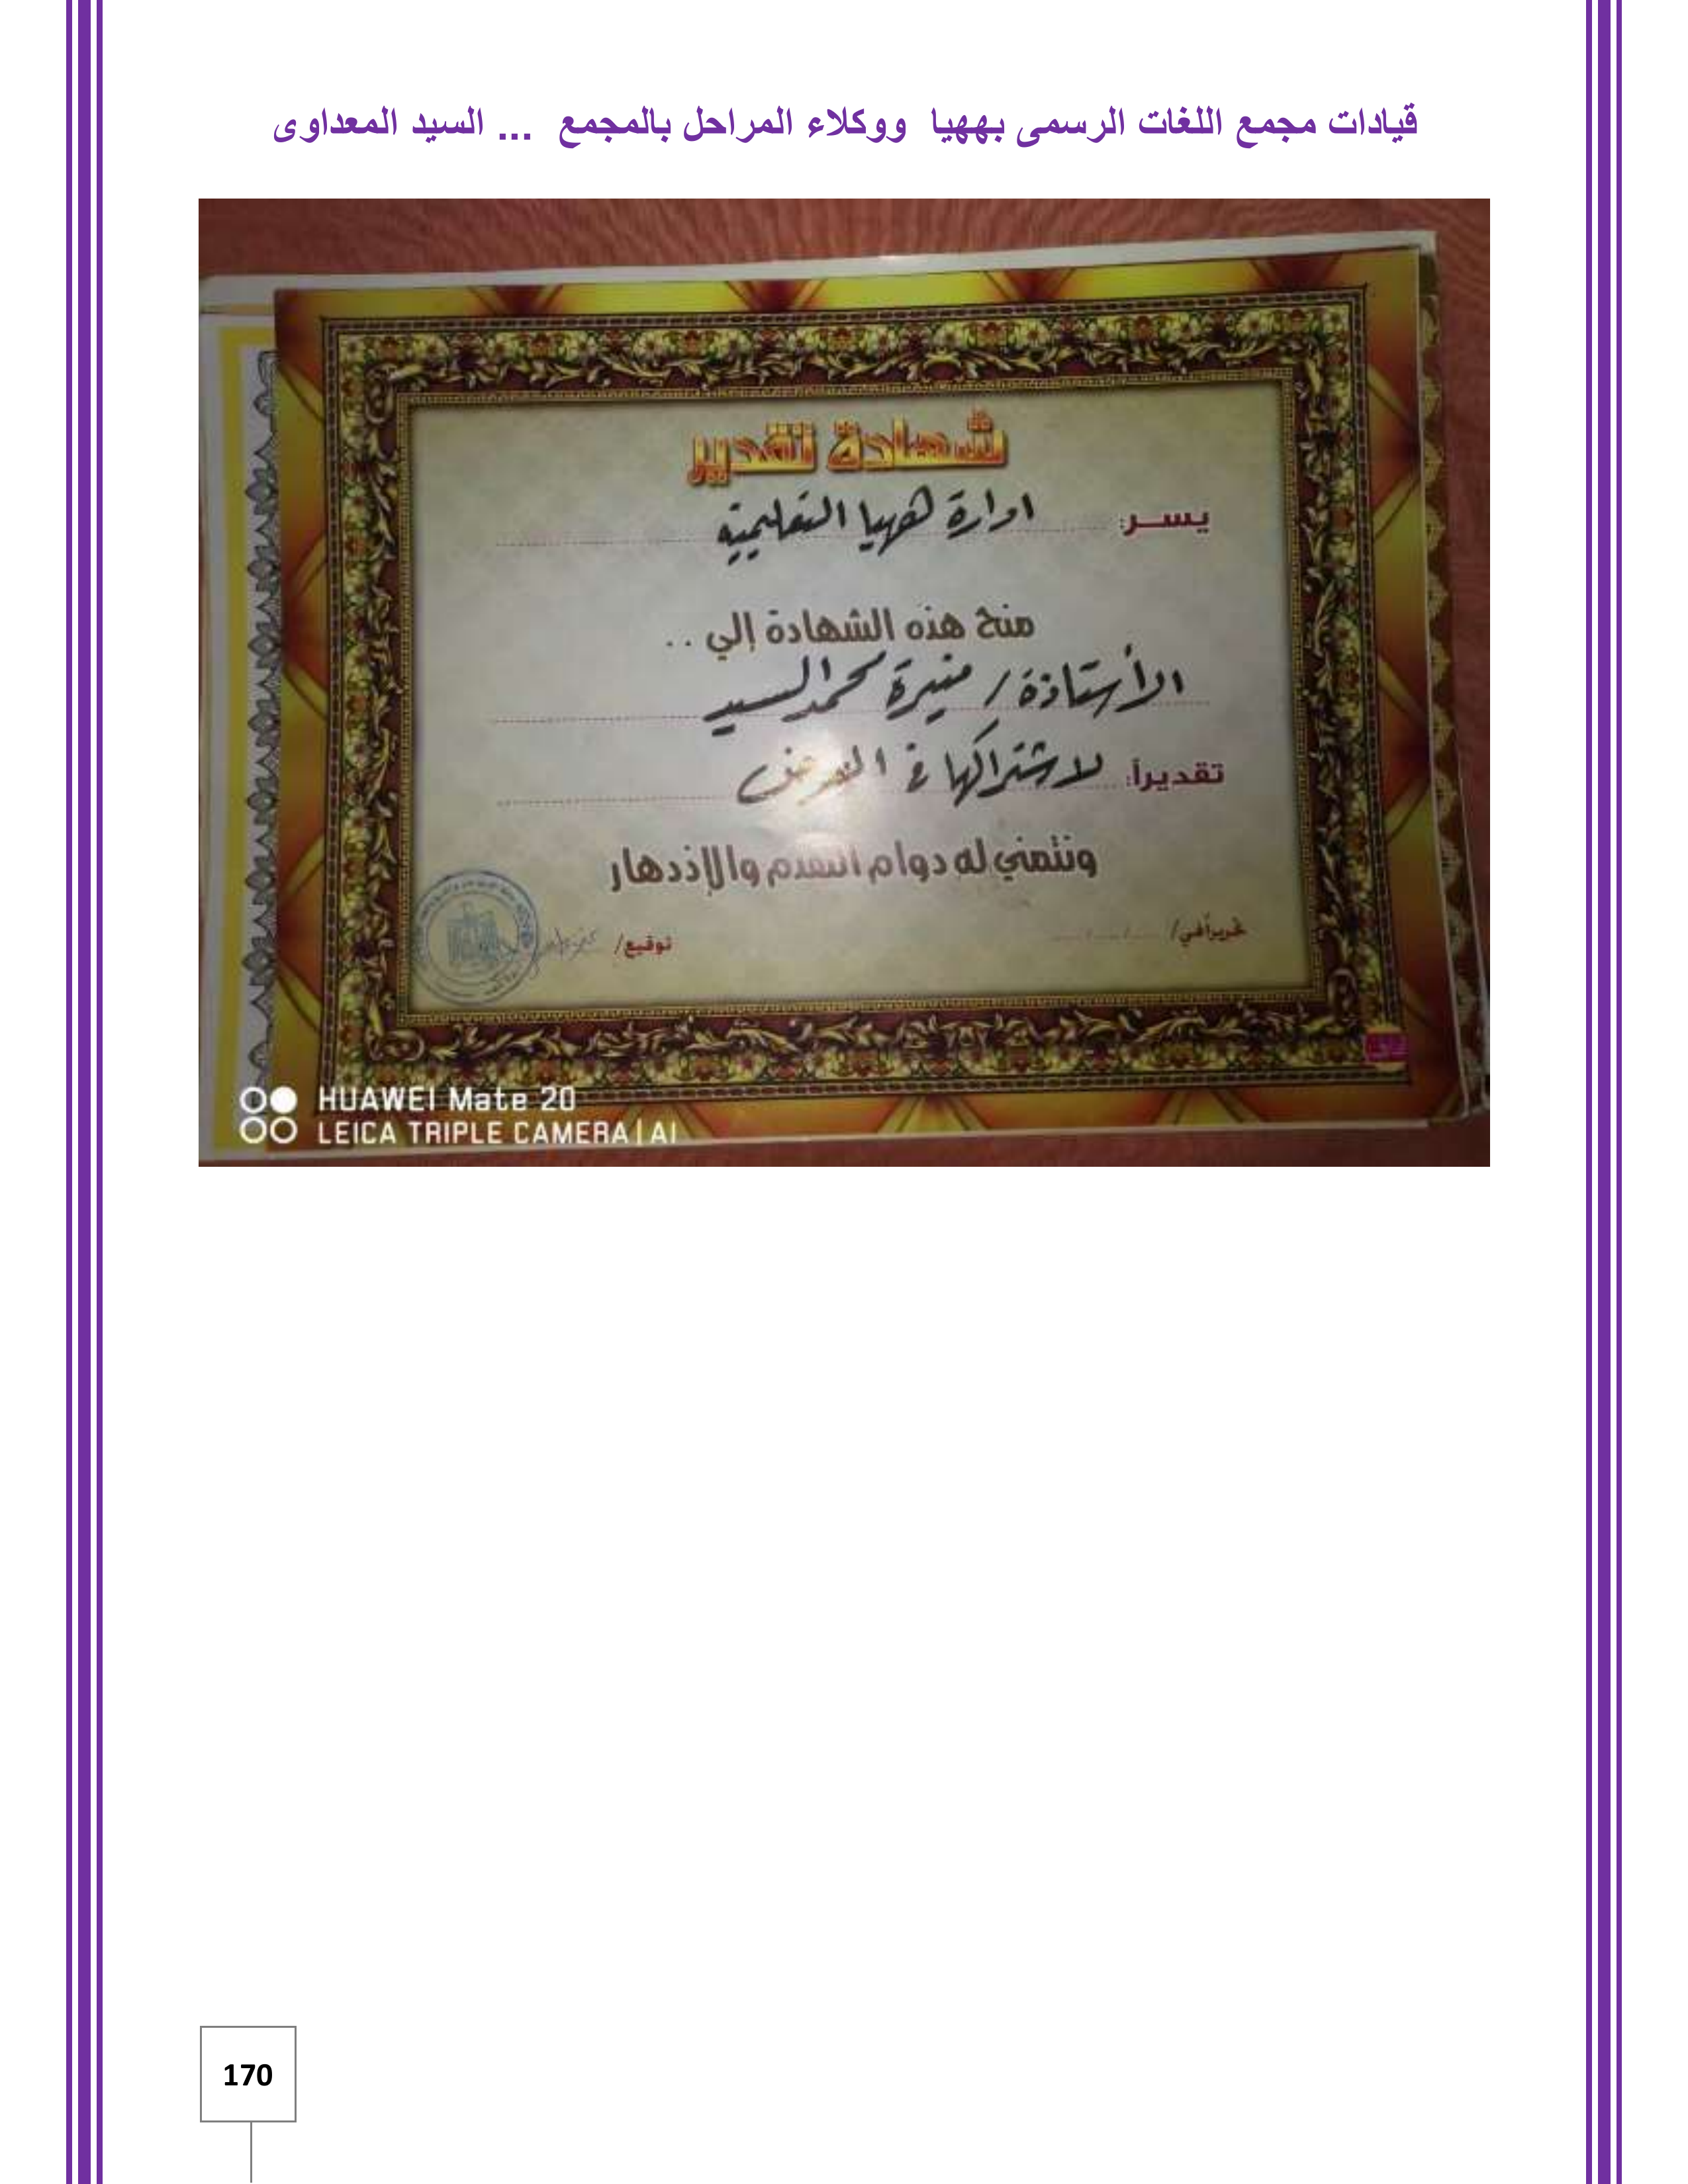 قيادات مجمع اللغات الرسمى بههيا ووكلاء المراحل بالمجمع ... السيد المعداوى
شهادة تقدير
يســر: ادارة ههيا التعليمية
منح هذه الشهادة إلي ..
الأستاذة / منيرة محمد السيد
تقديراً: لاشتراكها في المعرض
ونتمني له دوام التقدم والإذدهار
تحريراً في/ ..../..../....
توقيع/
HUAWEI Mate 20
LEICA TRIPLE CAMERA | AI
170